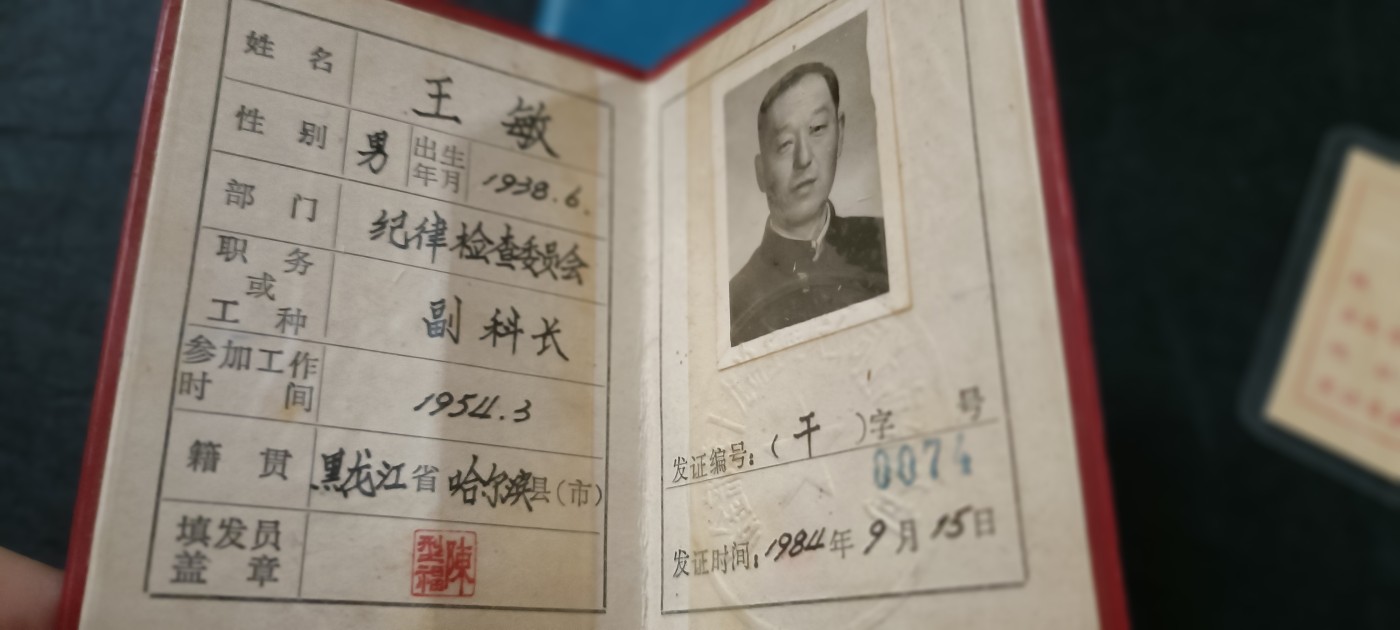 姓名 王敏
性别 男 出生年月 1938.6.
部门 纪律检查委员会
职务或工种 副科长
参加工作时间 1954.3
籍贯 黑龙江省哈尔滨县(市)
填发员盖章
发证编号:(干)字 0074号
发证时间:1984年9月15日